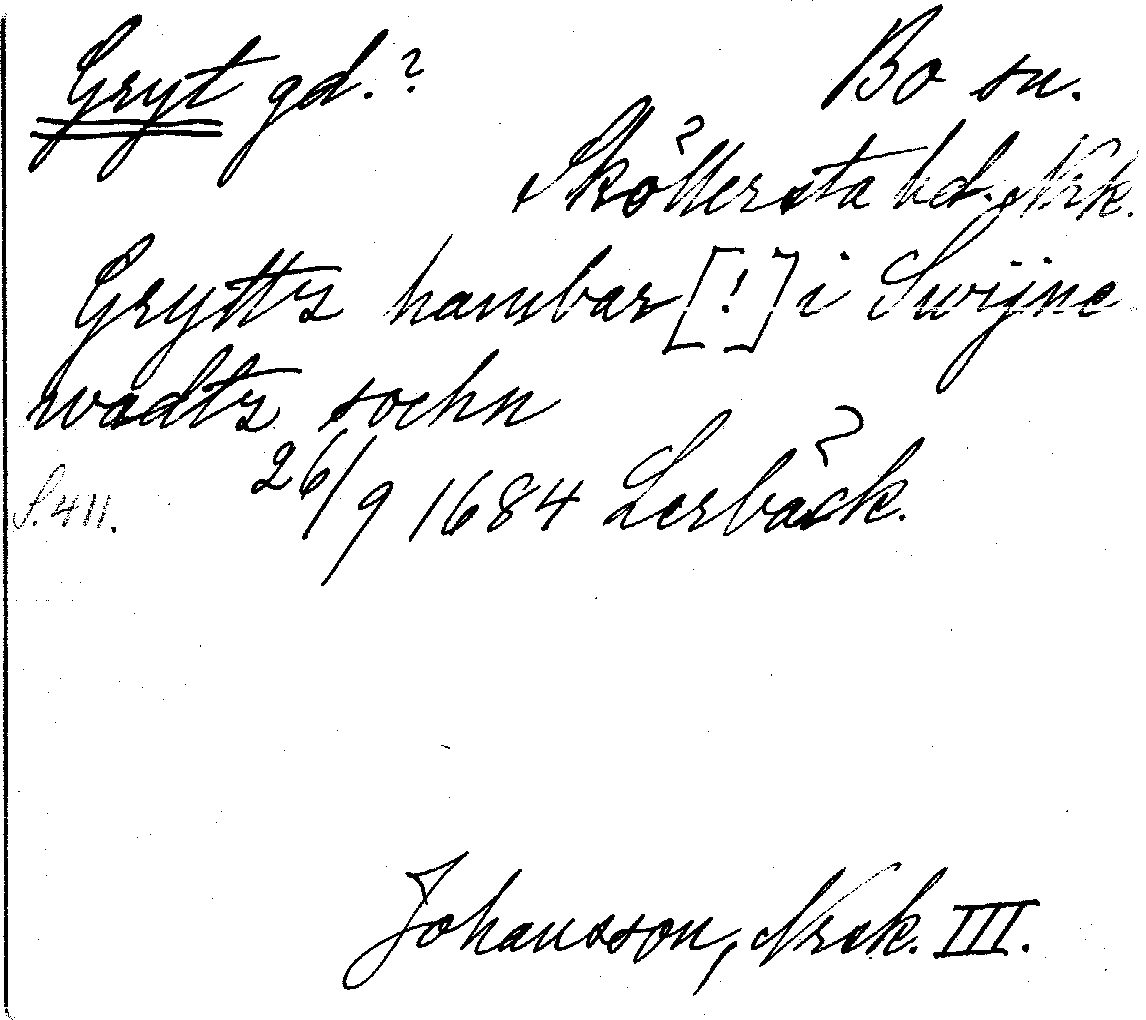 Gryt gd.? Bo sn.
Sköllersta hd. Nrk.
Gryttz hambar [!] i Swijne
wadtz sochn
S. 411. 26/9 1684 Lerbäck.
Johansson, Nrck. III.